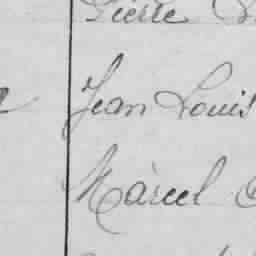 Pierre
Jean Louis
Marcel